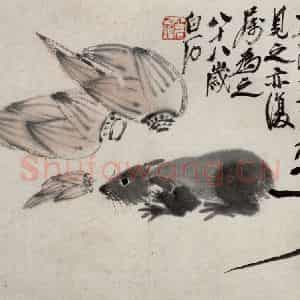 見之亦復
屬為之
八十八歲
白石
Shufawang.CN